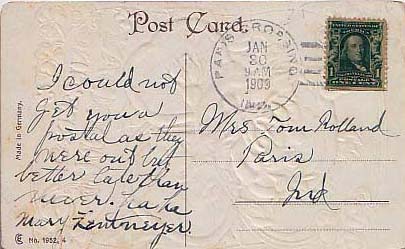 Post Card.
PARIS CROSSING
JAN
30
9 AM
1909
IND.
1
I could not
get you a
postal as they
were out but
better late than
never.
Mary Zentmeyer.
Mrs Tom Rolland
Paris
Ind
Made in Germany.
No. 1952, 4